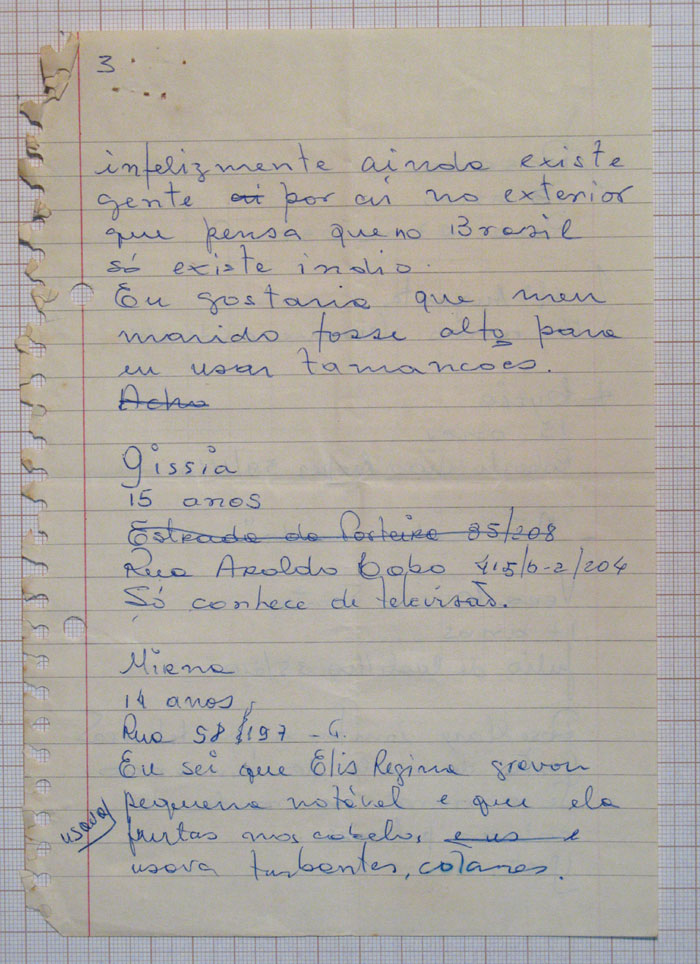 3
infelizmente ainda existe
gente ai por aí no exterior
que pensa que no Brasil
só existe índio.
Eu gostaria que meu
marido fosse alto para
eu usar tamancões.
Acho
Gissia
15 anos
Estrada do Porteira 85/208
Rua Aroldo Lobo 415/b-2/204
Só conhece de televisão.
Mirna
14 anos
Rua 58 /197 - G.
Eu sei que Elis Regina gravou
pequena notável e que ela
usava
frutas nos cabelos, e us e
usava turbantes, colares.